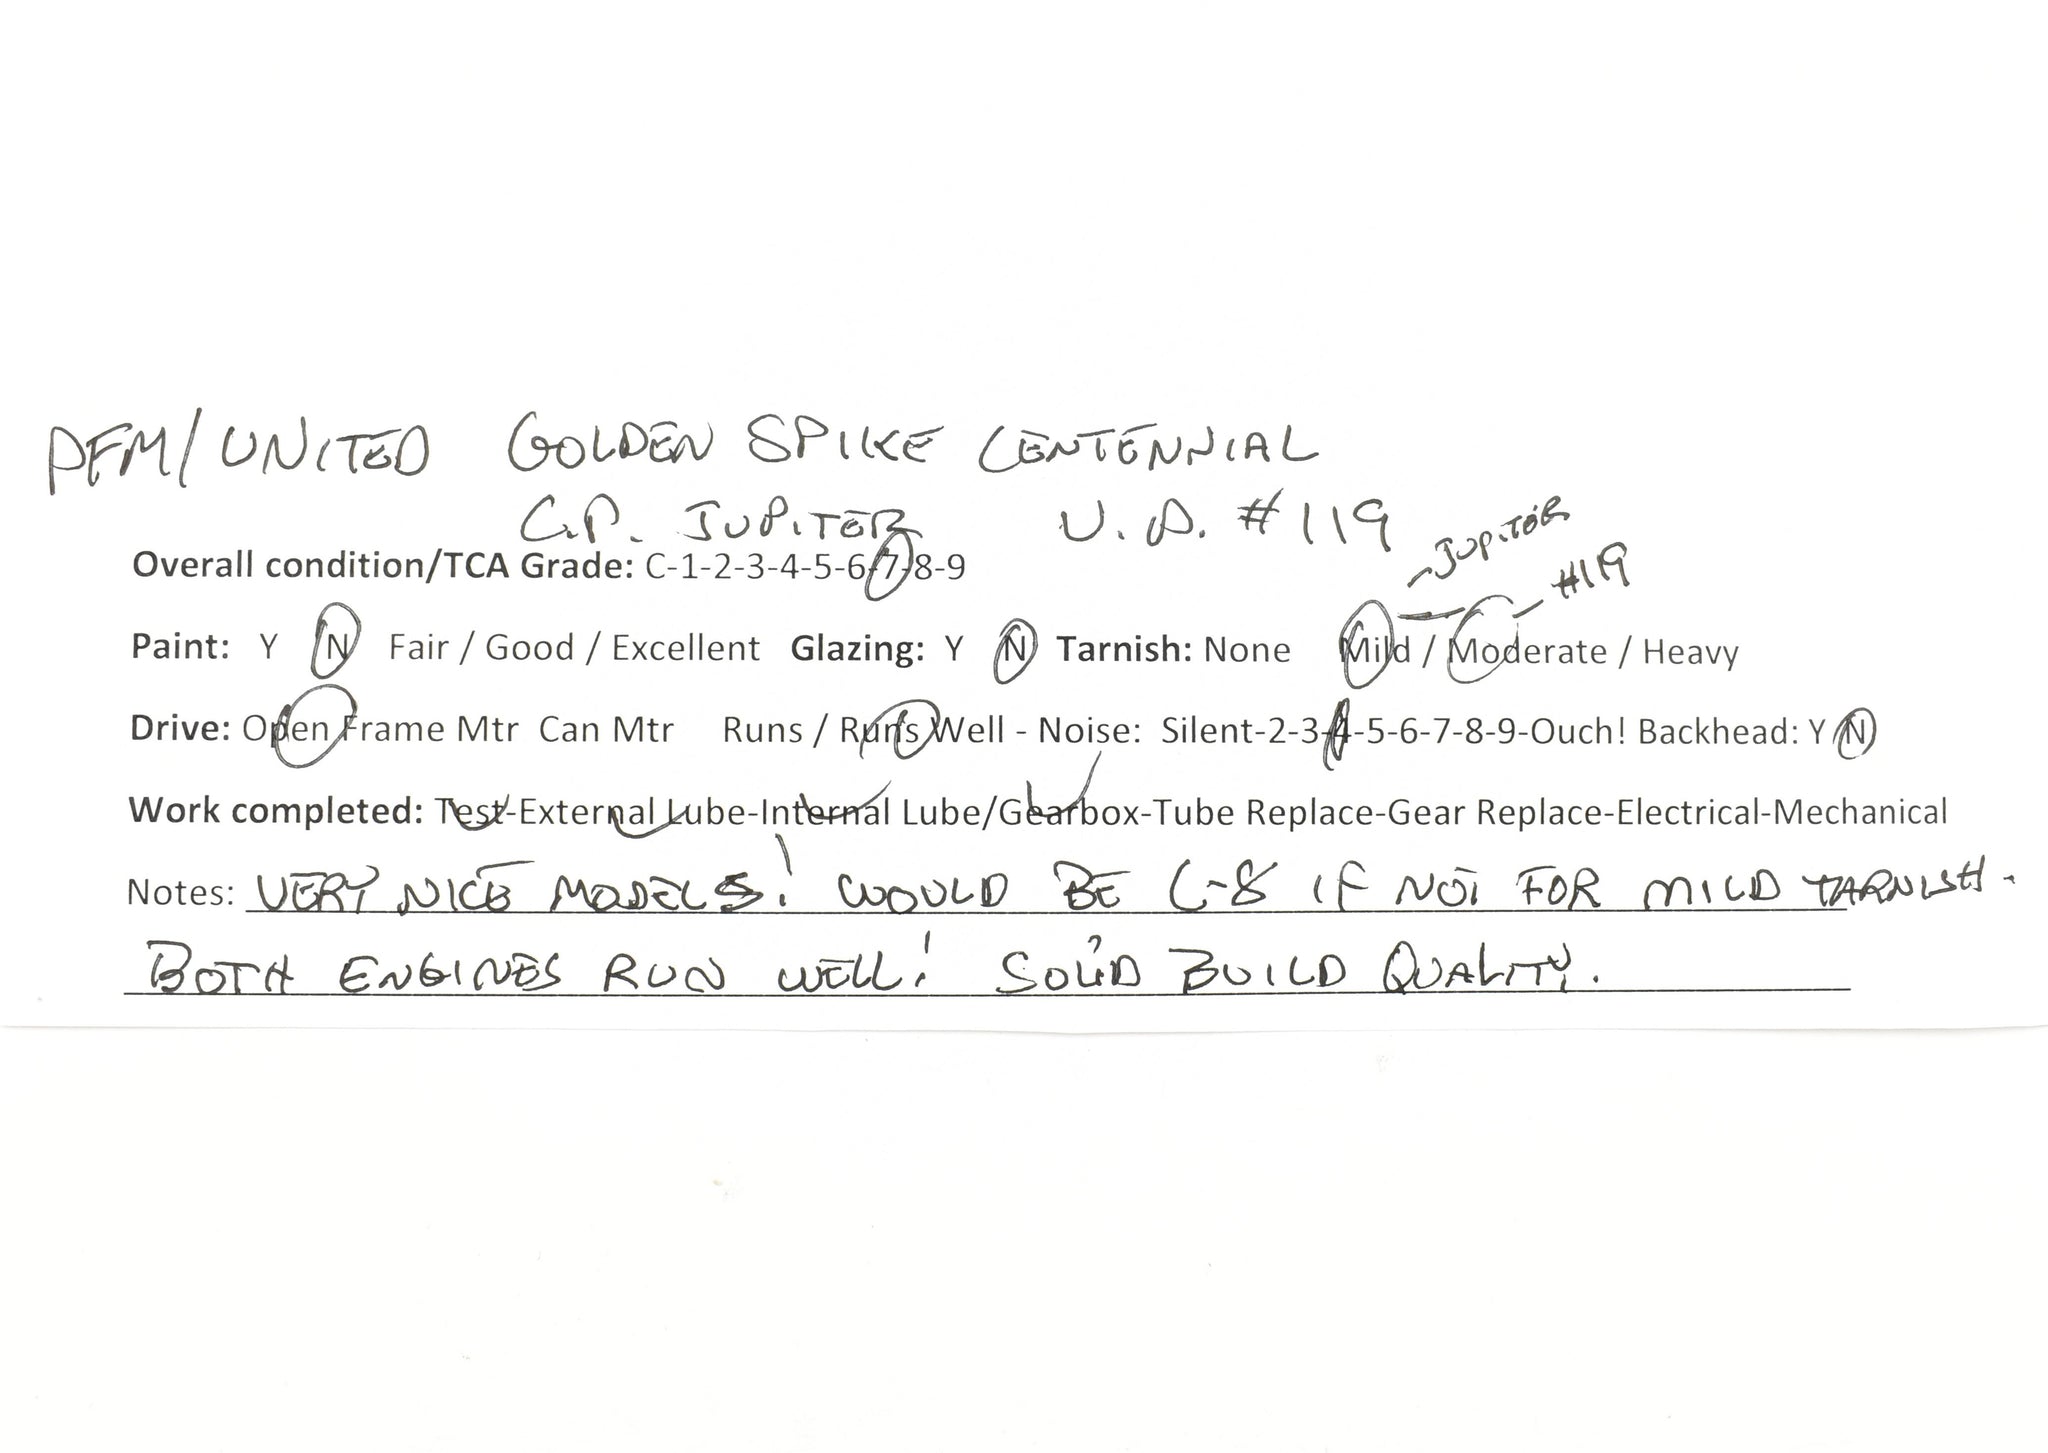 PFM/UNITED GOLDEN SPIKE CENTENNIAL
C.P. JUPITER U.P. #119
- JUPITER
Overall condition/TCA Grade: C-1-2-3-4-5-6-7-8-9
- #119
Paint: Y N Fair / Good / Excellent Glazing: Y N Tarnish: None Mild / Moderate / Heavy
Drive: Open Frame Mtr Can Mtr Runs / Runs Well - Noise: Silent-2-3-4-5-6-7-8-9-Ouch! Backhead: Y N
Work completed: Test-External Lube-Internal Lube/Gearbox-Tube Replace-Gear Replace-Electrical-Mechanical
Notes: VERY NICE MODELS! WOULD BE C-8 IF NOT FOR MILD TARNISH.
BOTH ENGINES RUN WELL! SOLID BUILD QUALITY.